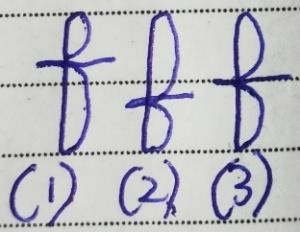 f f f
(1) (2) (3)